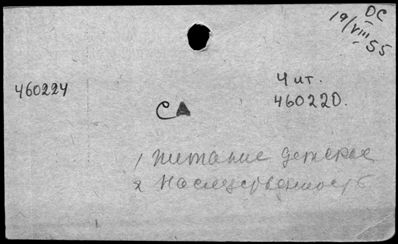 ДС
19/VIII 55
460224
Чит.
460220.
СА
1 Питание детское
2 Наследственность